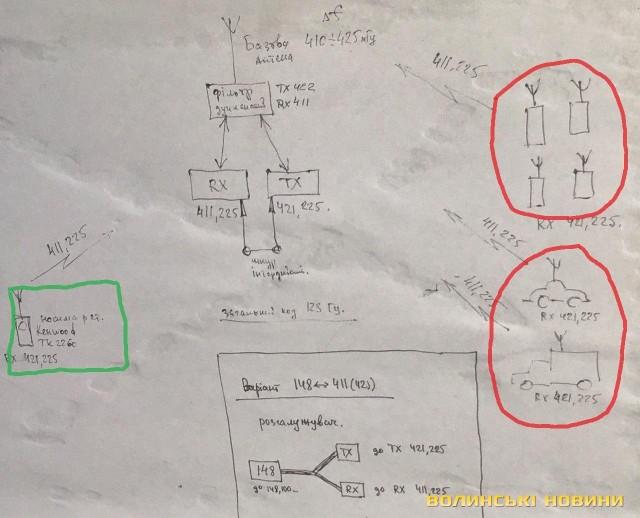 Δf
Базова 410÷425 мГц
Антена
фільтр
дуплексний
TX 422
RX 411
RX
TX
411,225
421,225.
шнур
411,225
411,225
RX 421,225.
411,225
411,225
RX 421,225
RX 421,225
носима р ст.
Kenwood
RX 421,225
загальний код 123 Гц.
Варіант 148↔411(421)
розгалужувач.
148
до 148,100
TX
до TX 421,225
RX
до RX 411,225
ВОЛИНСЬКІ НОВИНИ